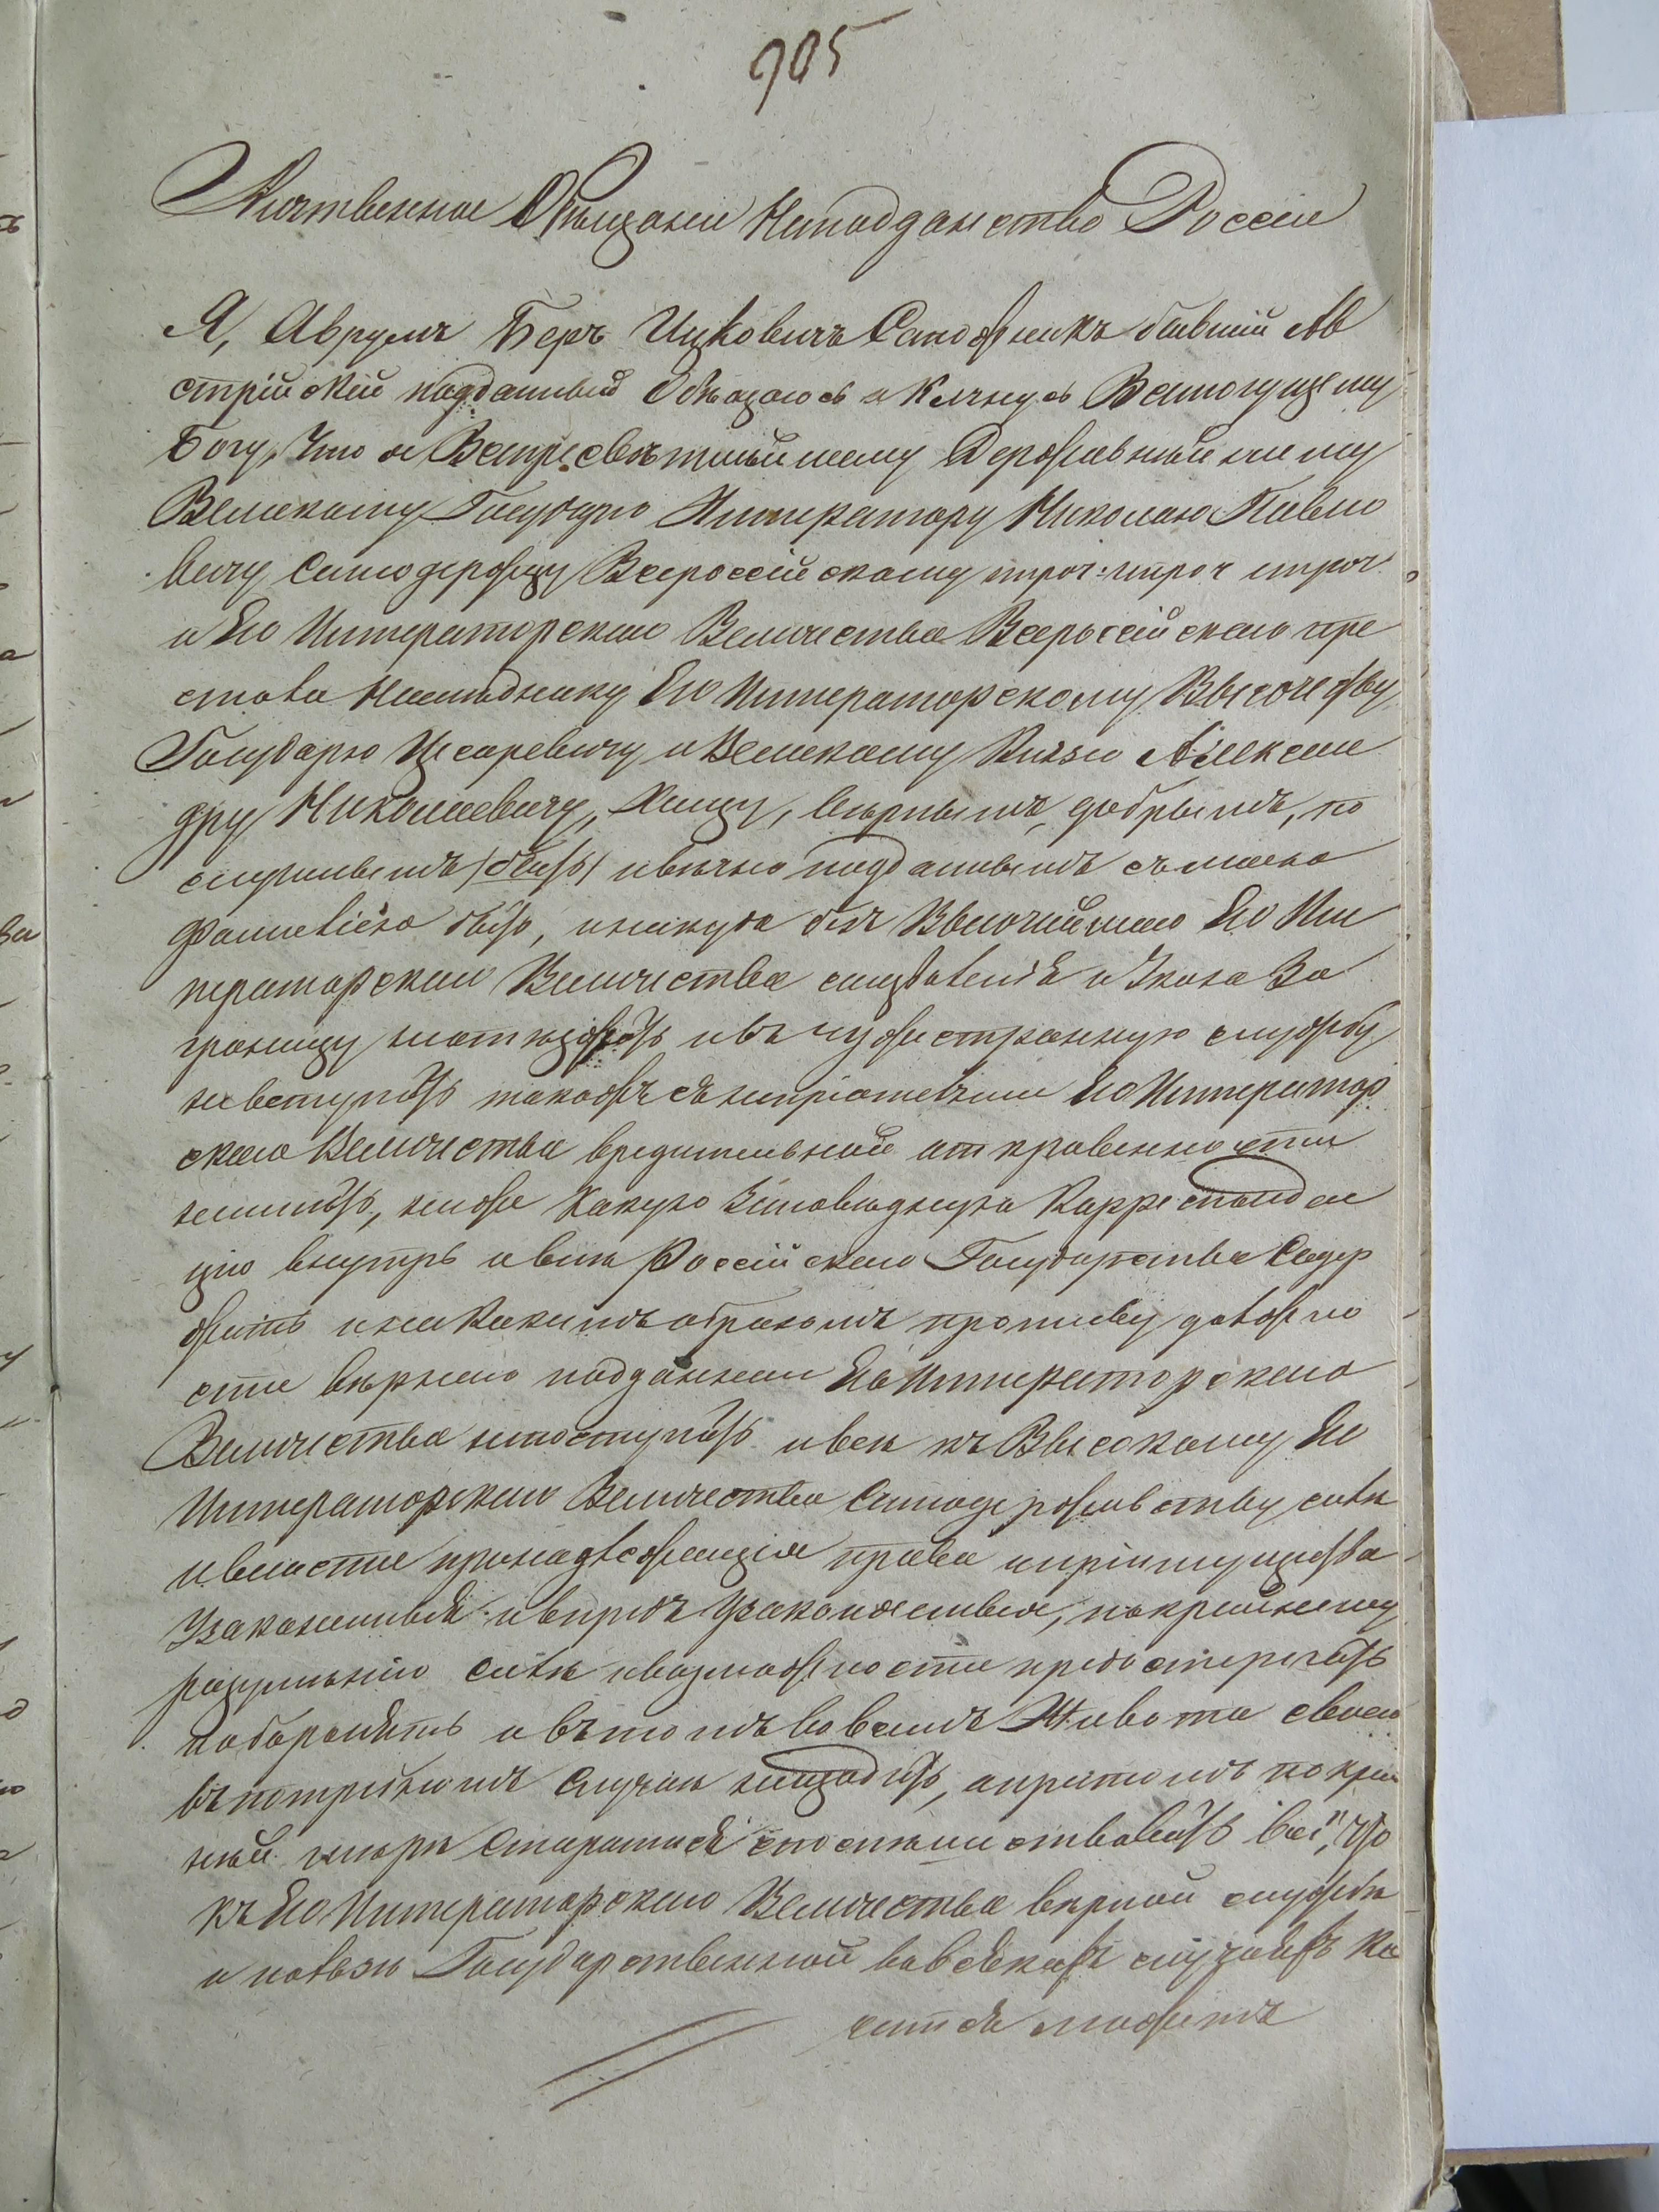 905
Клятвенное Обѣщаніе Наподданство Россіи
Я, Аврумъ Беръ Ицковичъ Сапожникъ бывшій Ав
стрійскій подданный Обѣщаюсь и Клянусь Всемогущему
Богу, Что я Всепресвѣтлѣйшему Державнѣйшему
Великому Государю Императору Николаю Павло
вичу Самодержцу Всероссійскому проч: ипроч ипроч
и Его Императорскаго Величества Всероссійскаго пре
стола Наслѣднику Его Императорскому Высочеству
Государю Цесаревичу и Великому Князю Алексан
дру Николаевичу, Хощу, вѣрнымъ, добрымъ, по
слушнымъ (быть) ивѣчно подданнымъ съ моею
фамиліею быть, иникуда безъ Высочайшаго Его Им
ператорскаго Величества соизволенія и Указа За
границу неотъѣзжать ивъ чужестранную службу
невступать такожъ съ непріятельми Его Император
скаго Величества вредительной откровенности
неимѣть, ниже какую Заповѣдную Корреспонден
цію внутрь ивнѣ Россійскаго Государства Содер
жать иникакимъ образомъ противу должно
сти вѣрнаго подданнаго Его Императорскаго
Величества непоступать ивсѣ къ Высокому Его
Императорскаго Величества Самодержавству силѣ
ивласти принадлежащія права ипріимущества
Узаконенныя ивпредь Узаконяемыя, покрайнему
разумѣнію силѣ ивозможности предостерегать
иоборонять ивътомъ вовсемъ Живота своего
въпотребномъ Случаѣ нещадить, апритомъ по край
ней мѣрѣ Стараться споспѣшествовать всё, что
къ Его Императорскаго Величества вѣрной службѣ
и пользѣ Государственной вовсякихъ случаяхъ Ка
саться можетъ